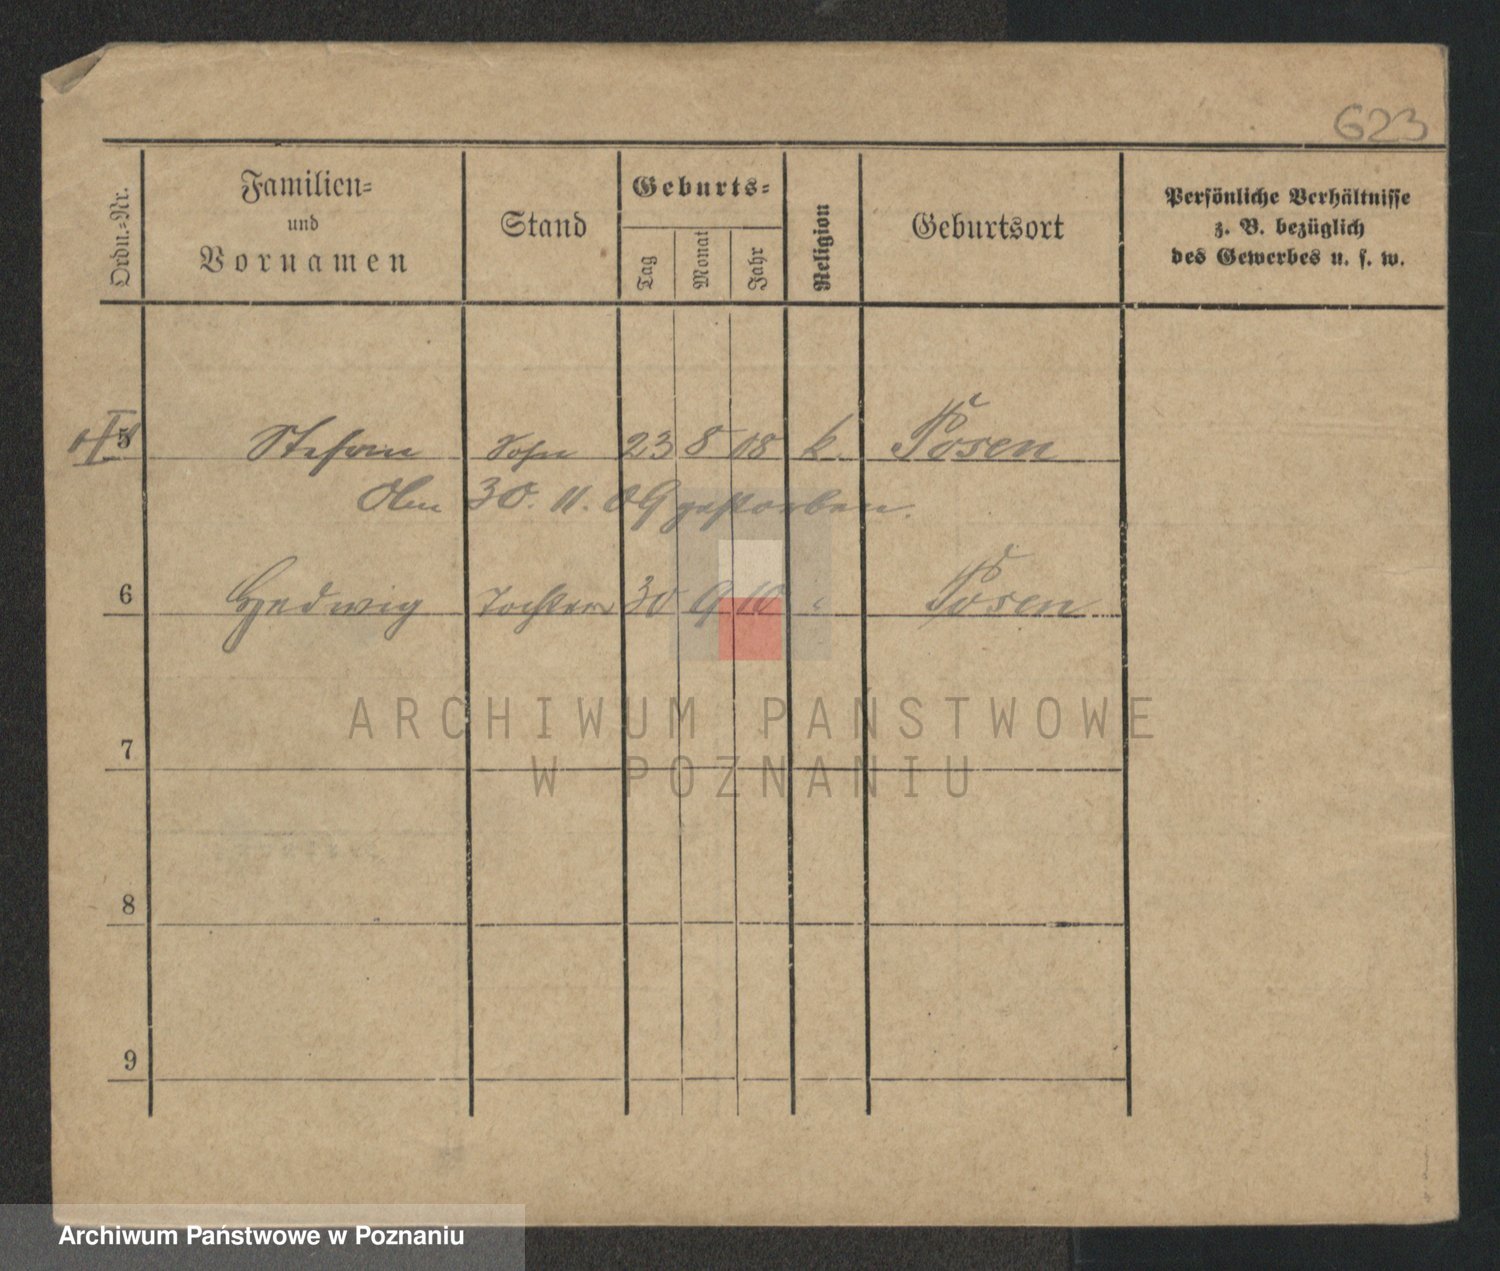 623
Ordn.-Nr.
Familien-
und
Vornamen
Stand
Geburts-
Tag
Monat
Jahr
Religion
Geburtsort
Persönliche Verhältnisse
z. B. bezüglich
des Gewerbes u. s. w.
5 Stefan Sohn 23 8 08 k. Posen
Am 30. 11. 09 gestorben.
6 Hedwig Tochter 30 9 10 " Posen
7
8
9
ARCHIWUM PAŃSTWOWE
W POZNANIU
Archiwum Państwowe w Poznaniu